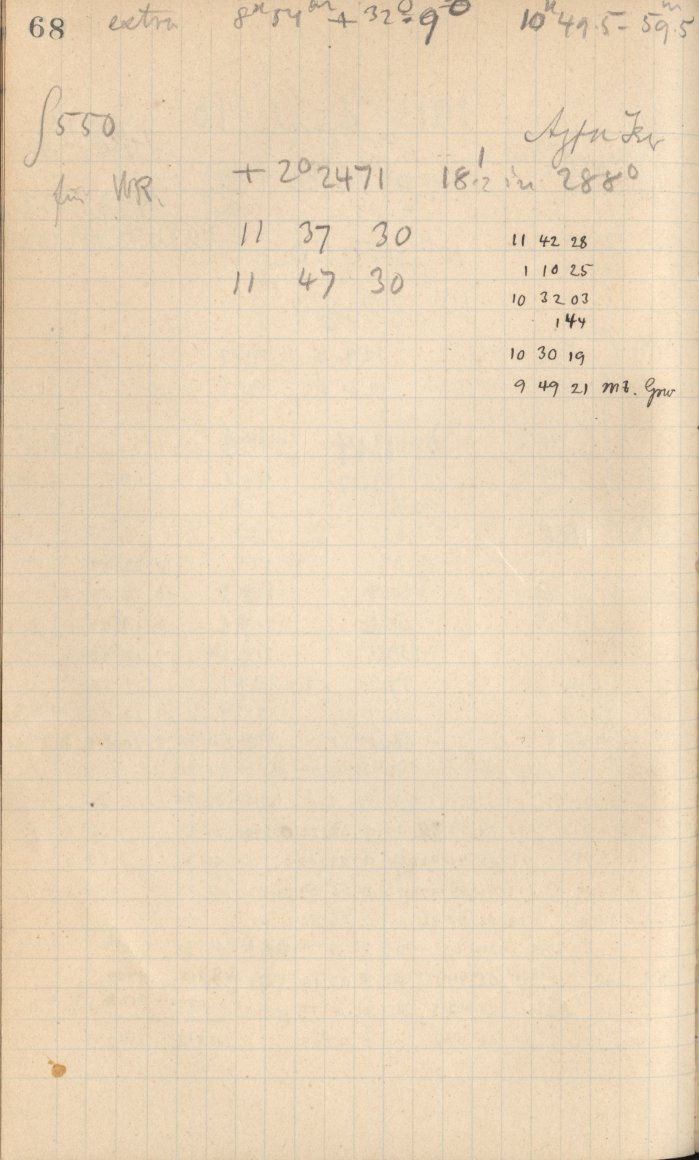 68 extra 8h 54m + 32°.9 10h 49.5 - 59.5m
∫550
für WR. + 20 2471 18.'2 in 288°
11 37 30
11 47 30
11 42 28
1 10 25
10 32 03
1 44
10 30 19
9 49 21 mt. Grw